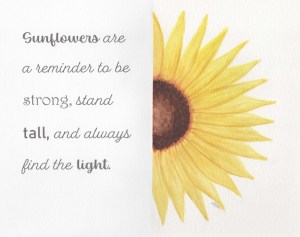 Sunflowers are
a reminder to be
strong, stand
tall, and always
find the light.